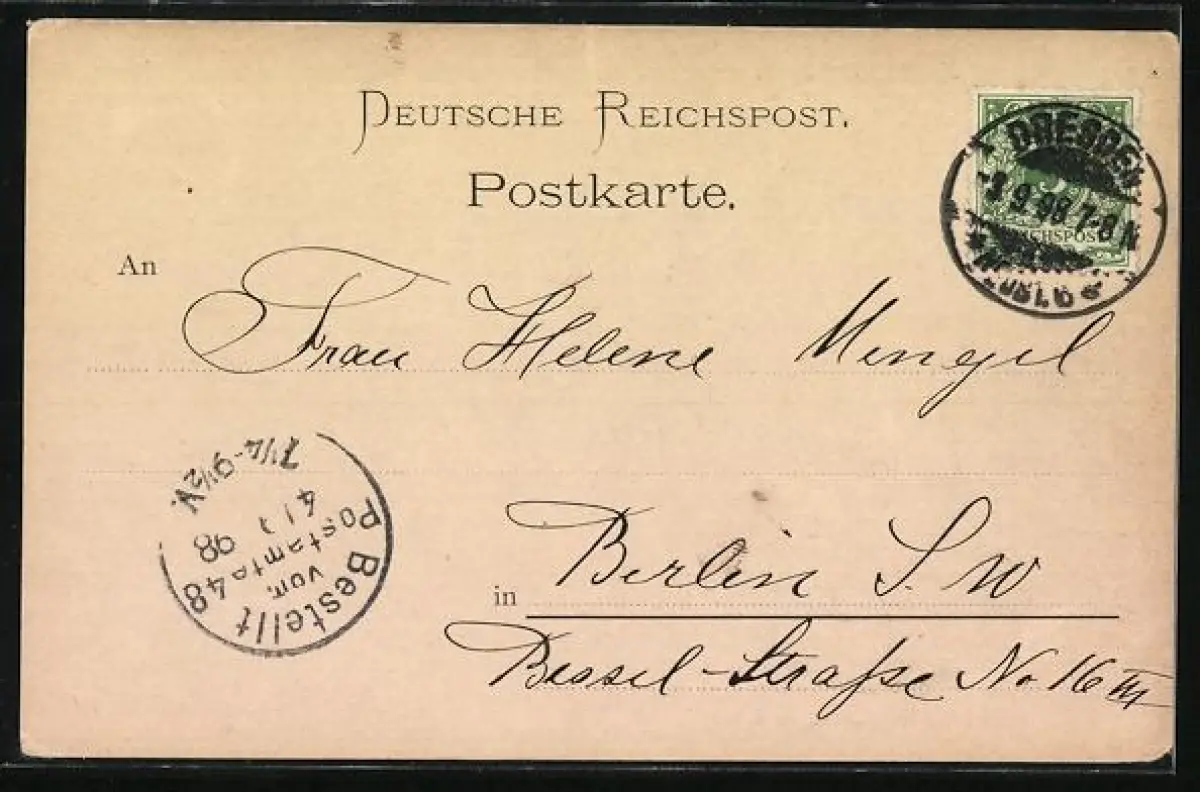 DEUTSCHE REICHSPOST.
Postkarte.
DRESDEN
9 98 7-8 N
REICHSPOST
An
Frau Helene Mengel
Bestellt
vom
Postamte 48
98
7¼-9½V.
in Berlin S.W
Bessel-Straße No 16 III